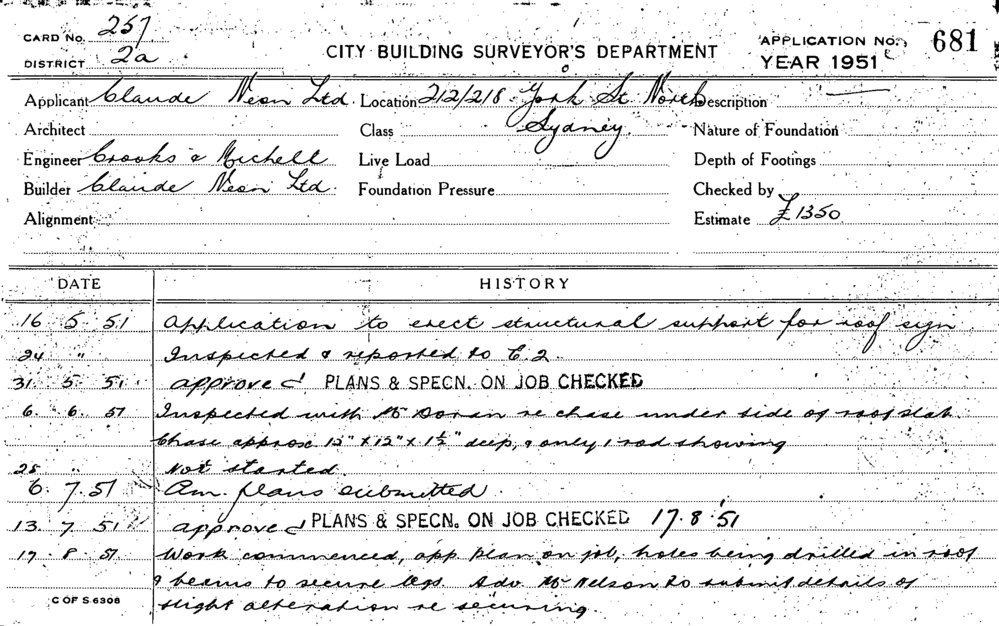 CARD No. 257
DISTRICT 2a
CITY BUILDING SURVEYOR'S DEPARTMENT
APPLICATION No. 681
YEAR 1951
Applicant Claude Neon Ltd. Location 212/218 York St North Description
Architect Class Sydney. Nature of Foundation
Engineer Crooks & Michell Live Load Depth of Footings
Builder Claude Neon Ltd. Foundation Pressure Checked by
Alignment Estimate £1350
DATE HISTORY
16 5 51 Application to erect structural support for roof sign
24 " Inspected & reported to C.2.
31 5 51 approved PLANS & SPECN. ON JOB CHECKED
6. 6. 51 Inspected with Mr Doran re chase under side of roof slab.
Chase approx 12" x 12" x 1½" deep, & only 1 rod showing
25 " Not started
6. 7. 51 Am. plans submitted.
13. 7. 51 approved PLANS & SPECN. ON JOB CHECKED 17.8.51
17. 8. 51 Work commenced, app plan on job, holes being drilled in roof
& beams to secure legs. Adv. Mr Nelson to submit details of
slight alteration re securing.
C OF S 6306